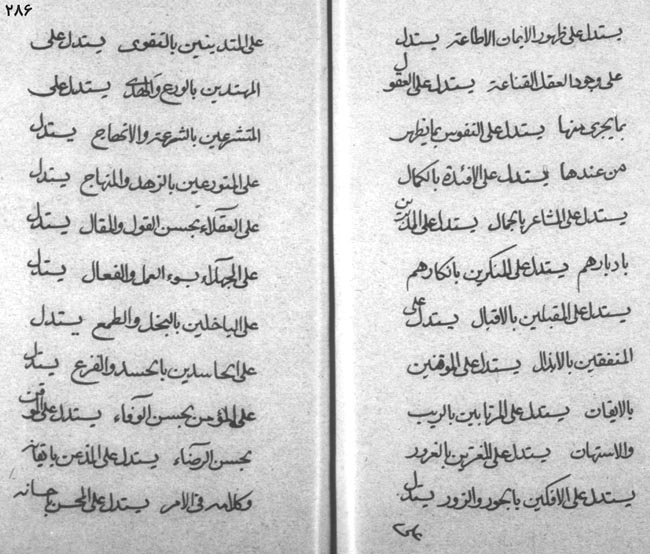 ٢٨۶
يستدل على ظهور الايمان الاطاعة يستدل
على وجود العقل القناعة يستدل على العقول
بما يجرى منها يستدل على النفوس بما يظهر
من عندها يستدل على الافئدة بالكمال
يستدل على المشاعر بالجمال يستدل على المدبرين
بادبارهم يستدل على المنكرين بانكارهم
يستدل على المقبلين بالاقبال يستدل على
المنفقين بالابذال يستدل على الموقنين
بالايقان يستدل على المرتابين بالريب
والاستهان يستدل على المغترين بالغرور
يستدل على الافكين بالجور والزور يستدل
على المتدينين بالتقوى يستدل على
المهتدين بالورع والهدى يستدل على
المتشرعين بالشرعة والانهاج يستدل
على المتورعين بالزهد والمنهاج يستدل
على العقلاء بحسن القول والمقال يستدل
على الجهلاء بسوء العمل والفعال يستدل
على الباخلين بالبخل والطمع يستدل
على الحاسدين بالحسد والفزع يستدل
على المؤمن بحسن الوفاء يستدل على الموقن
بحسن الرضاء يستدل على المذعن بايقانه
وكلامه فى الامر يستدل على المحسن باحسانه